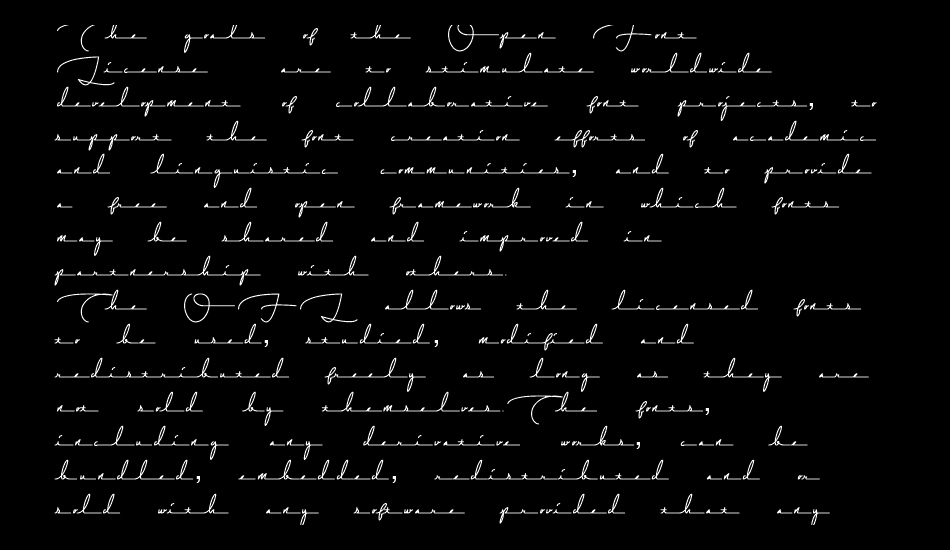 The goals of the Open Font
License are to stimulate worldwide
development of collaborative font projects, to
support the font creation efforts of academic
and linguistic communities, and to provide
a free and open framework in which fonts
may be shared and improved in
partnership with others.
The OFL allows the licensed fonts
to be used, studied, modified and
redistributed freely as long as they are
not sold by themselves. The fonts,
including any derivative works, can be
bundled, embedded, redistributed and or
sold with any software provided that any